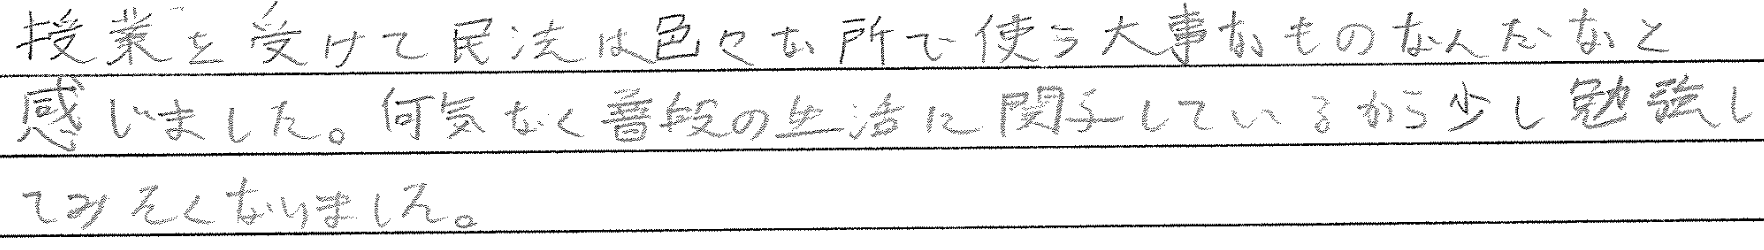 授業を受けて民法は色々な所で使う大事なものなんだなと
感じました。何気なく普段の生活に関与しているから少し勉強し
てみたくなりました。